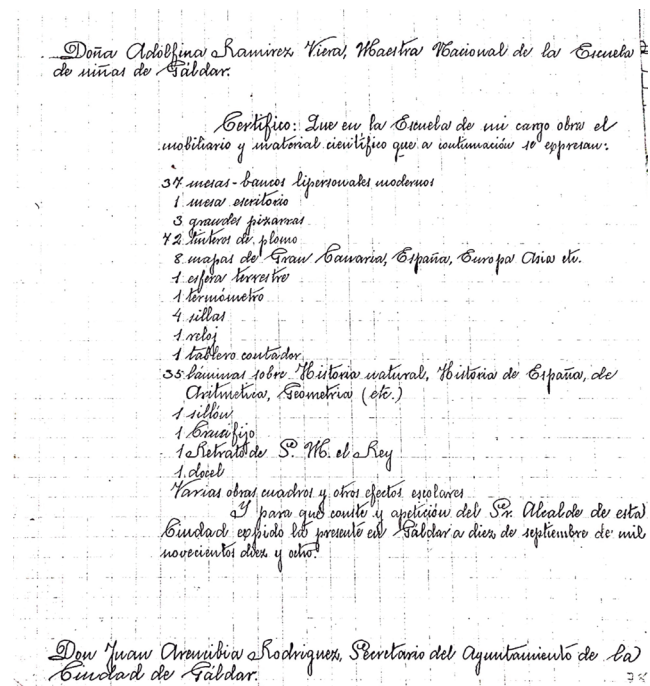 Doña Adolfina Ramirez Viera, Maestra Nacional de la Escuela
de niñas de Gáldar.
Certifico: Que en la Escuela de mi cargo obra el
mobiliario y material científico que a continuación se expresan:
37 mesas-bancos bipersonales modernos
1 mesa escritorio
3 grandes pizarras
72 tinteros de plomo
8 mapas de Gran Canaria, España, Europa Asia etc.
1 esfera terrestre
1 termómetro
4 sillas
1 reloj
1 tablero contador
35 láminas sobre Historia natural, Historia de España, de
Aritmetica, Geometria (etc.)
1 sillón
1 Crucifijo
1 Retrato de S. M. el Rey
1 docel
Varias obras cuadros y otros efectos escolares
Y para que conste y apetición del Sr. Alcalde de esta
Ciudad expido la presente en Gáldar a diez de septiembre de mil
novecientos diez y ocho.
Don Juan Arencibia Rodriguez, Secretario del Ayuntamiento de la
Ciudad de Gáldar.